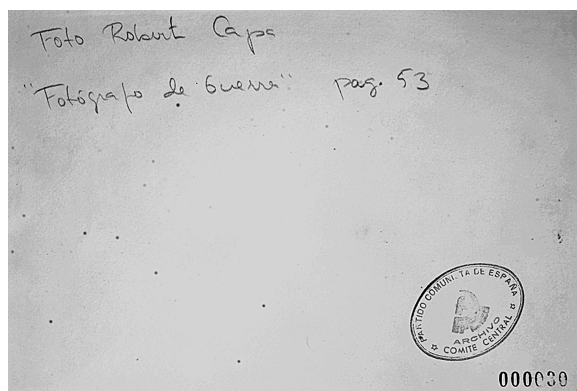 Foto Robert Capa
"Fotógrafo de Guerra" pag. 53
PARTIDO COMUNISTA DE ESPAÑA
ARCHIVO
COMITE CENTRAL
000030